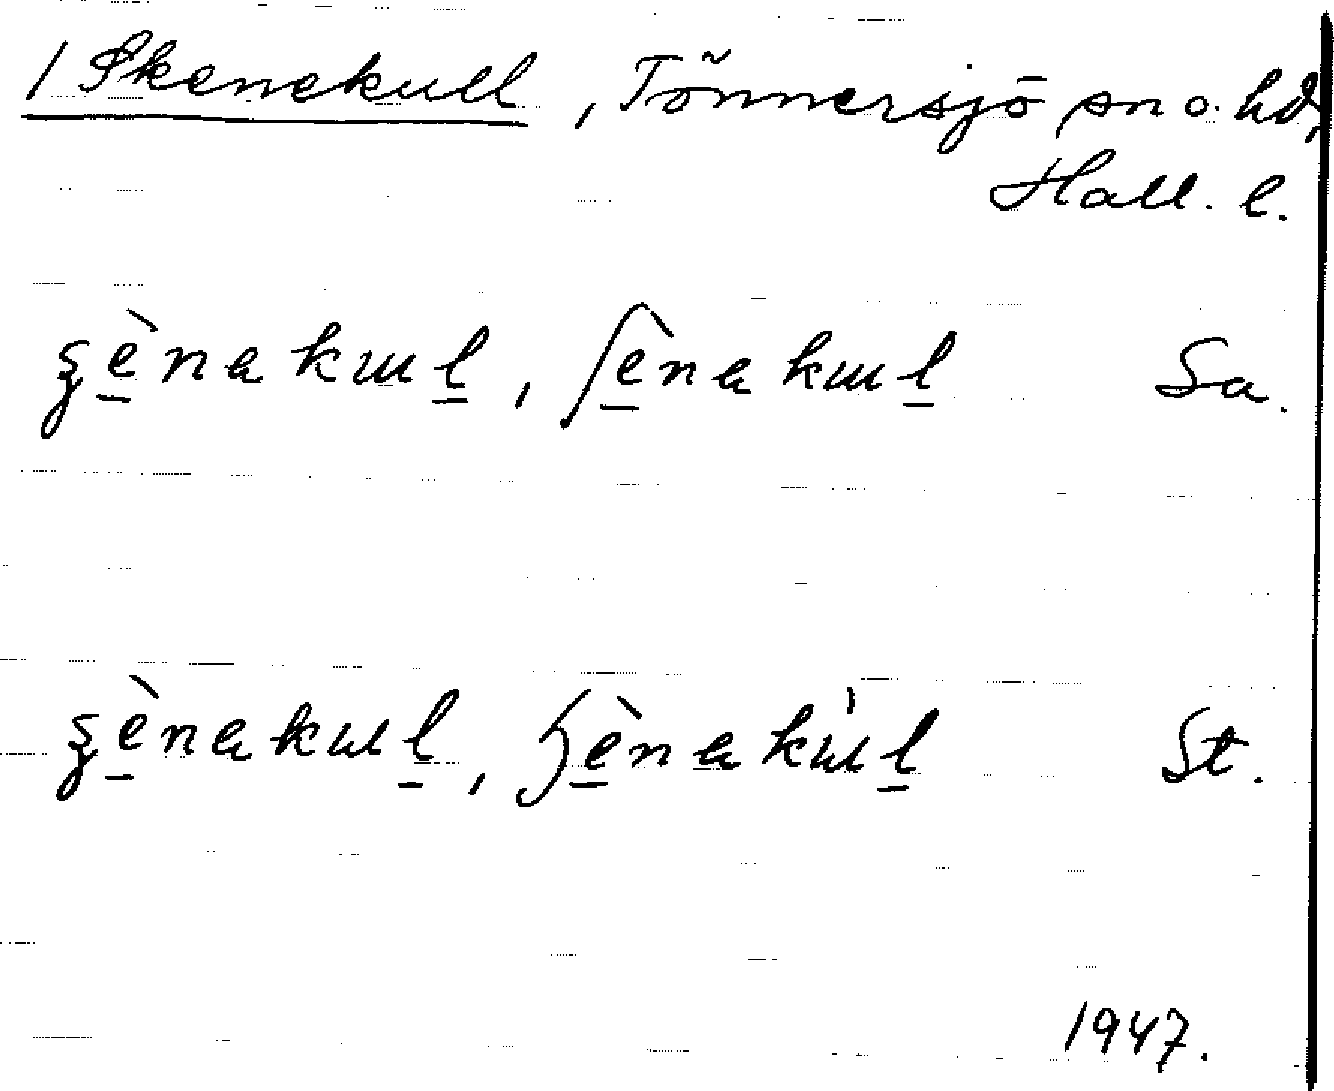 1 Skenekull, Tönnersjö sn o. hd,
Hall. l.
ʂè̱nakɯḻ, ʃè̱nakɯḻ Sa.
ʂè̱nakɯḻ, ɧè̱nakɯ̀ḻ St.
1947.